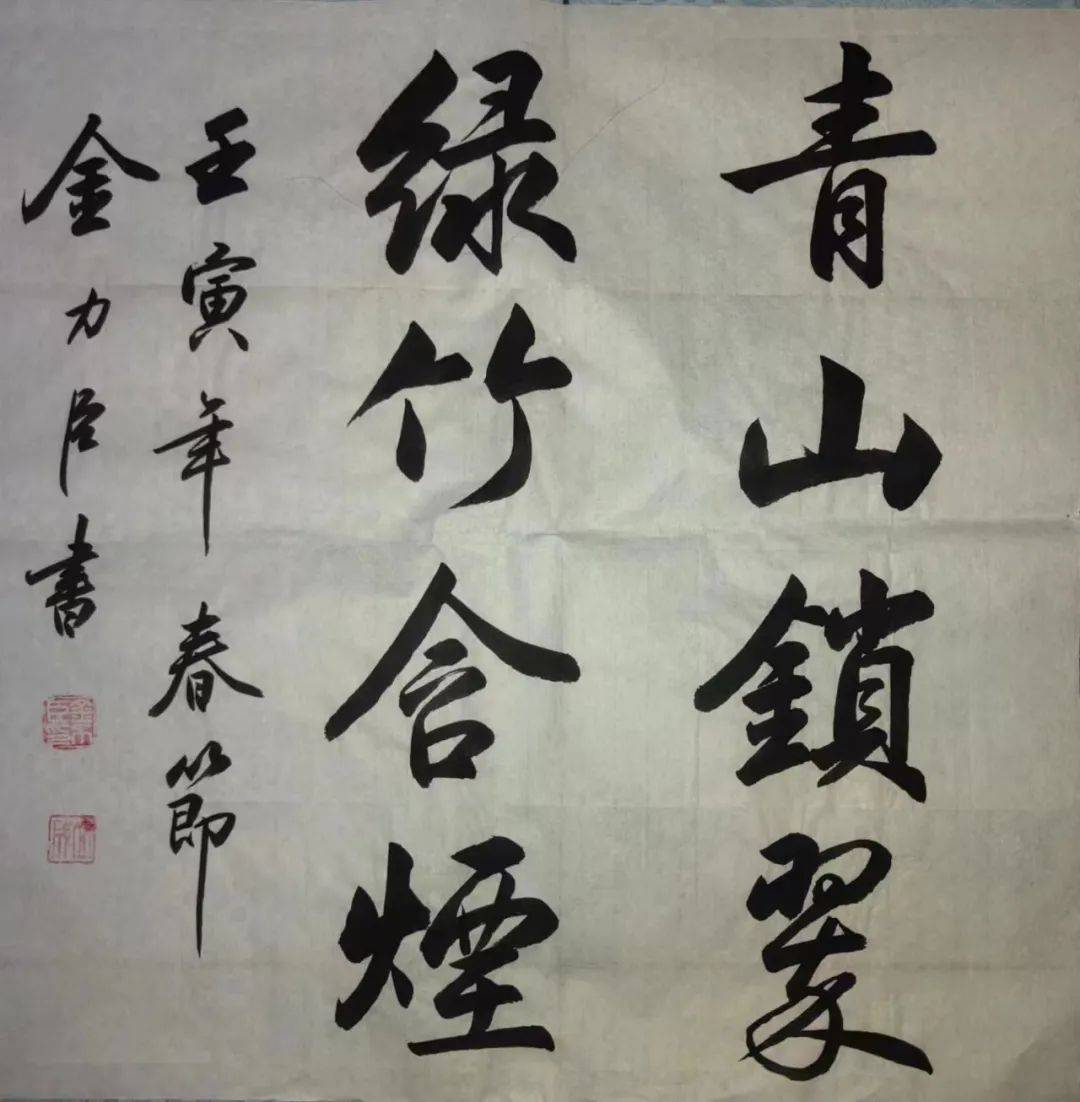 青山鎖翠
绿竹含煙
壬寅年春節
金力 書